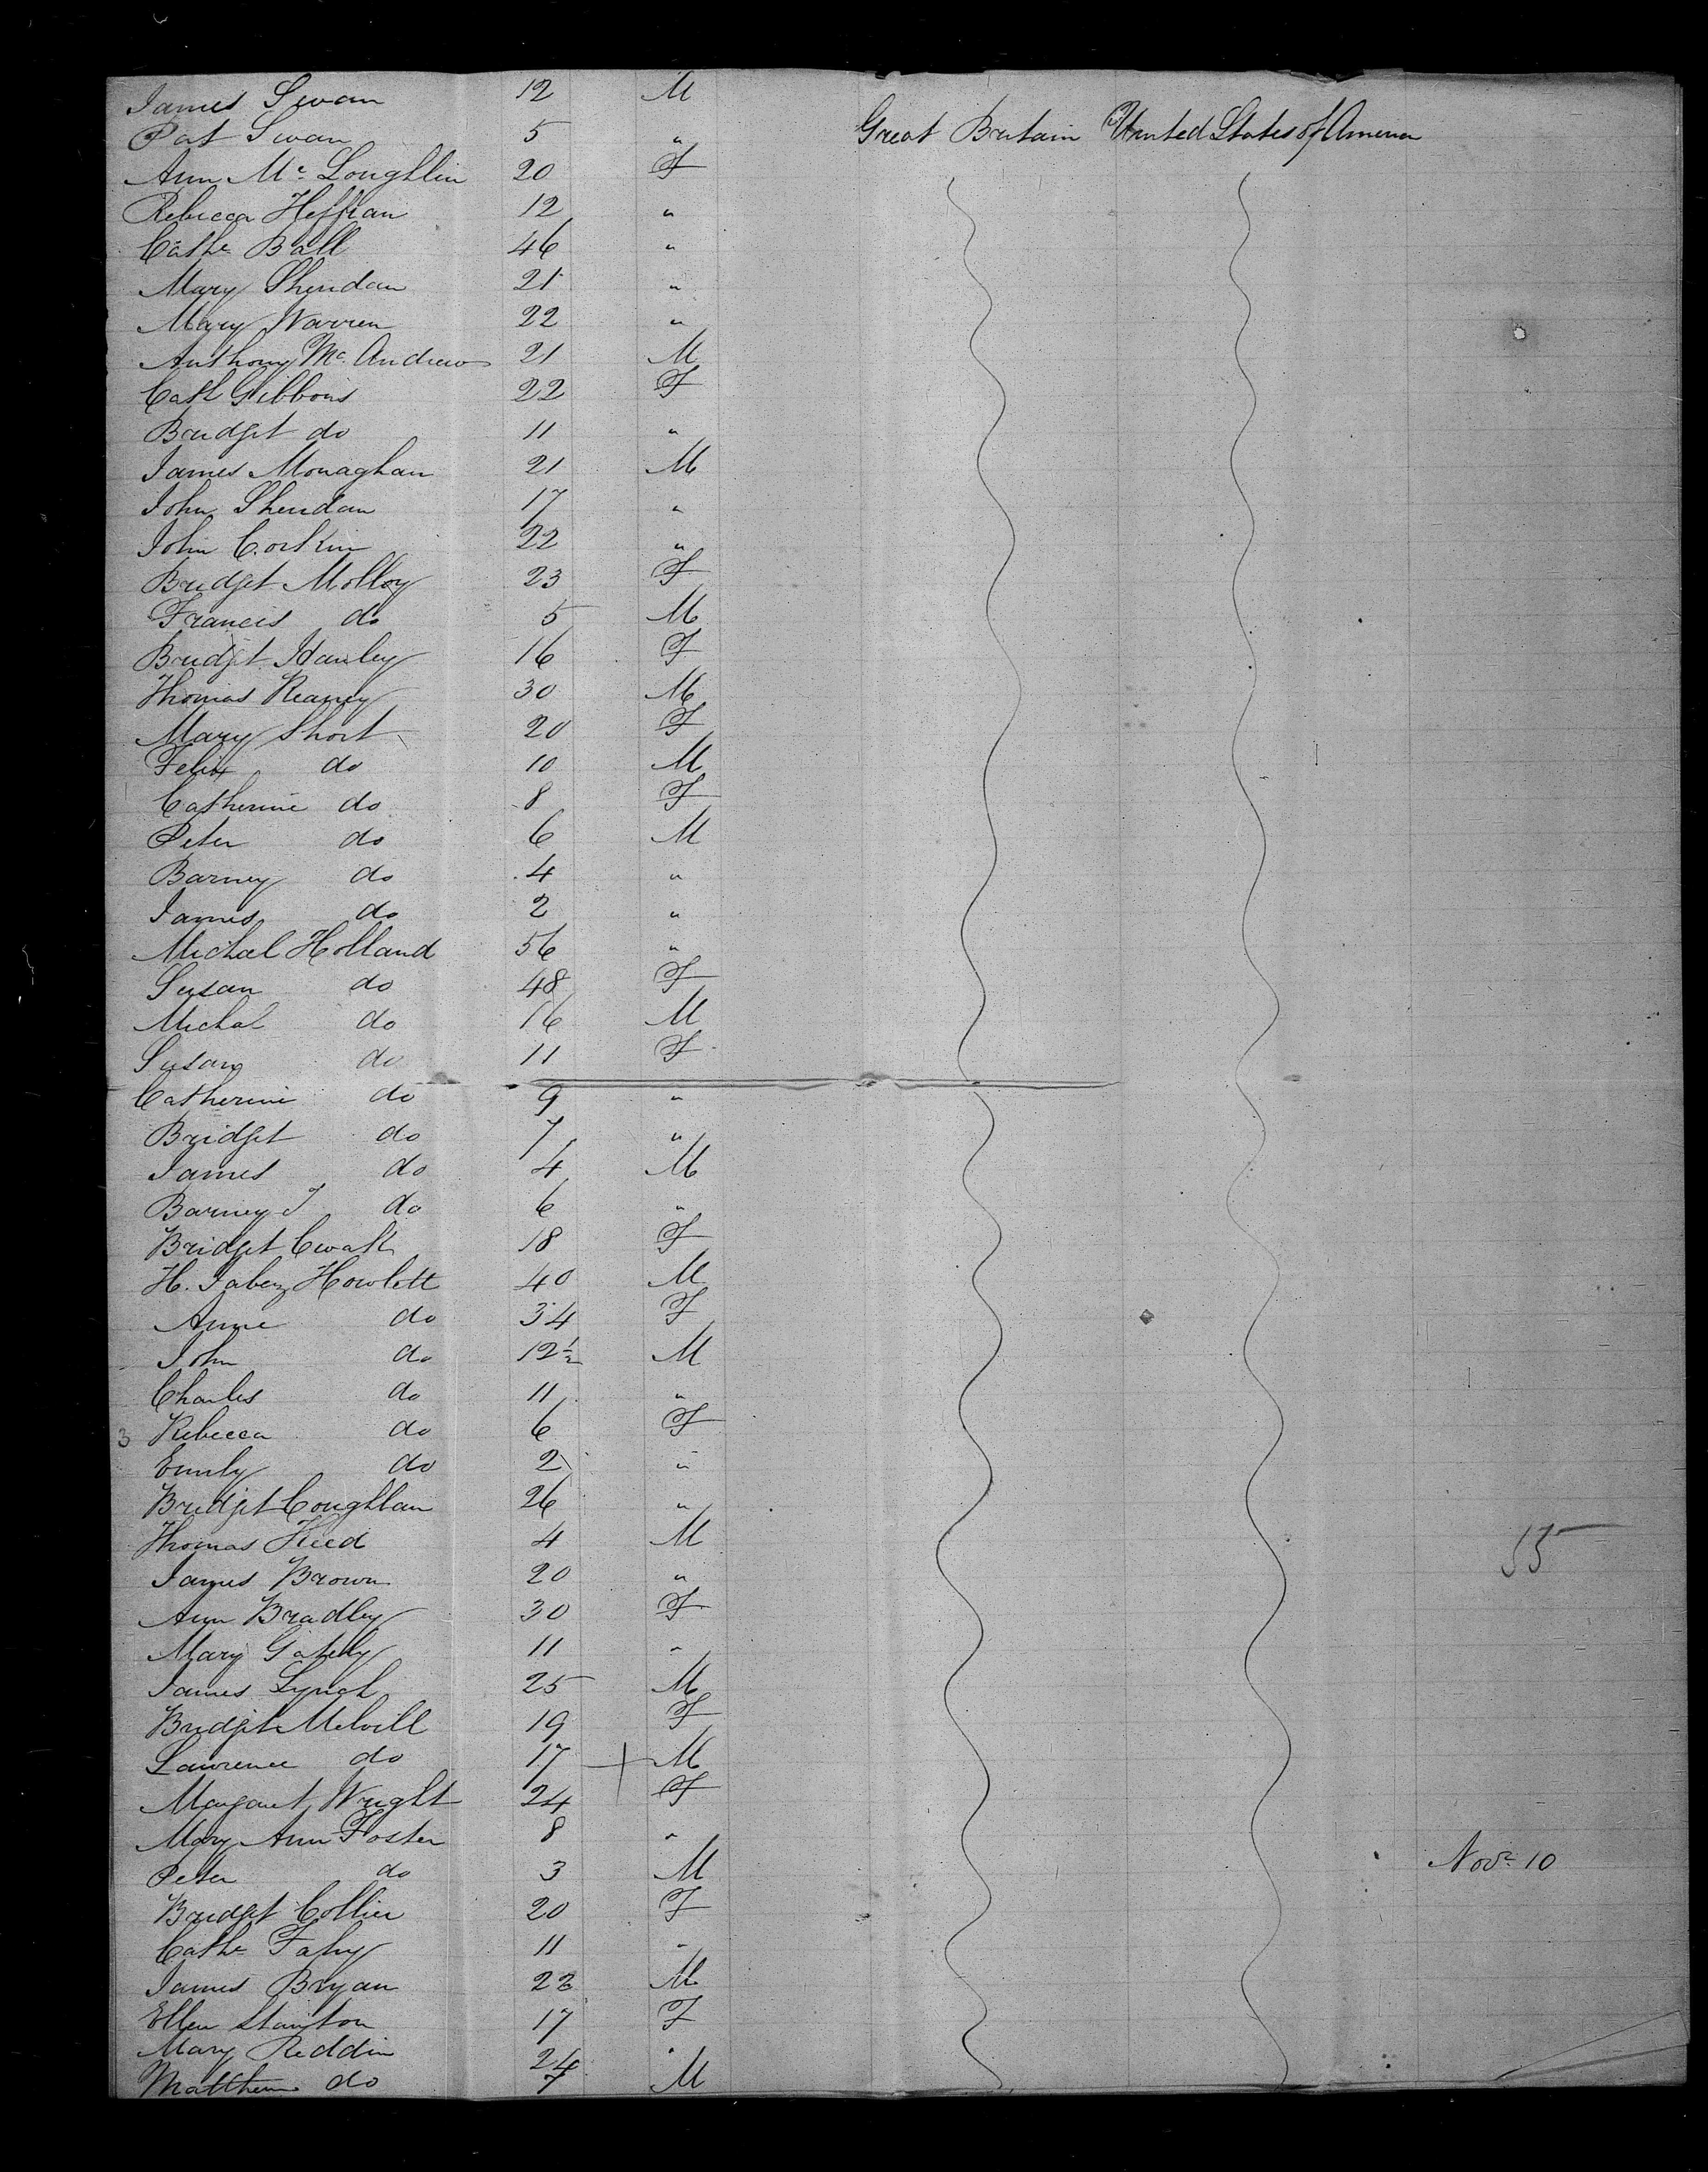 James Swan 12 M
Pat Swan 5 " Great Britain United States of America
Ann Mc Loughlin 20 F
Rebecca Heffian 12 "
Cathe Ball 46 "
Mary Sheridan 21 "
Mary Warren 22 "
Anthony Mc Andrew 21 M
Cath Gibbons 22 F
Bridget do 11 "
James Monaghan 21 M
John Sheridan 17 "
John Corkin 22 "
Bridget Molloy 23 F
Francis do 5 M
Bridget Hanley 16 F
Thomas Reaney 30 M
Mary Short 20 F
Felix do 10 M
Catherine do 8 F
Peter do 6 M
Barney do 4 "
James do 2 "
Michael Holland 56 "
Susan do 48 F
Michal do 16 M
Susan do 11 F
Catherine do 9 "
Bridget do 7 "
James do 4 M
Barney J do 6 "
Bridget 18 F
H. Jabez Howlett 40 M
Anne do 34 F
John do 12½ M
Charles do 11 "
3 Rebecca do 6 F
Emily do 2 "
Bridget Coughlan 26 "
Thomas Heed 4 M 55
James Brown 20 "
Ann Bradley 30 F
Mary Gately 11 "
James Lynch 25 M
Bridget Melvill 19 F
Lawrence do 17 M
Margaret Wright 24 F
Mary Ann Foster 8 "
Peter do 3 M Novr 10
Bridget Collier 20 F
Cathe Fahy 11 "
James Bryan 22 M
Ellen Stanton 17 F
Mary Reddin 24 "
Matthew do 7 M